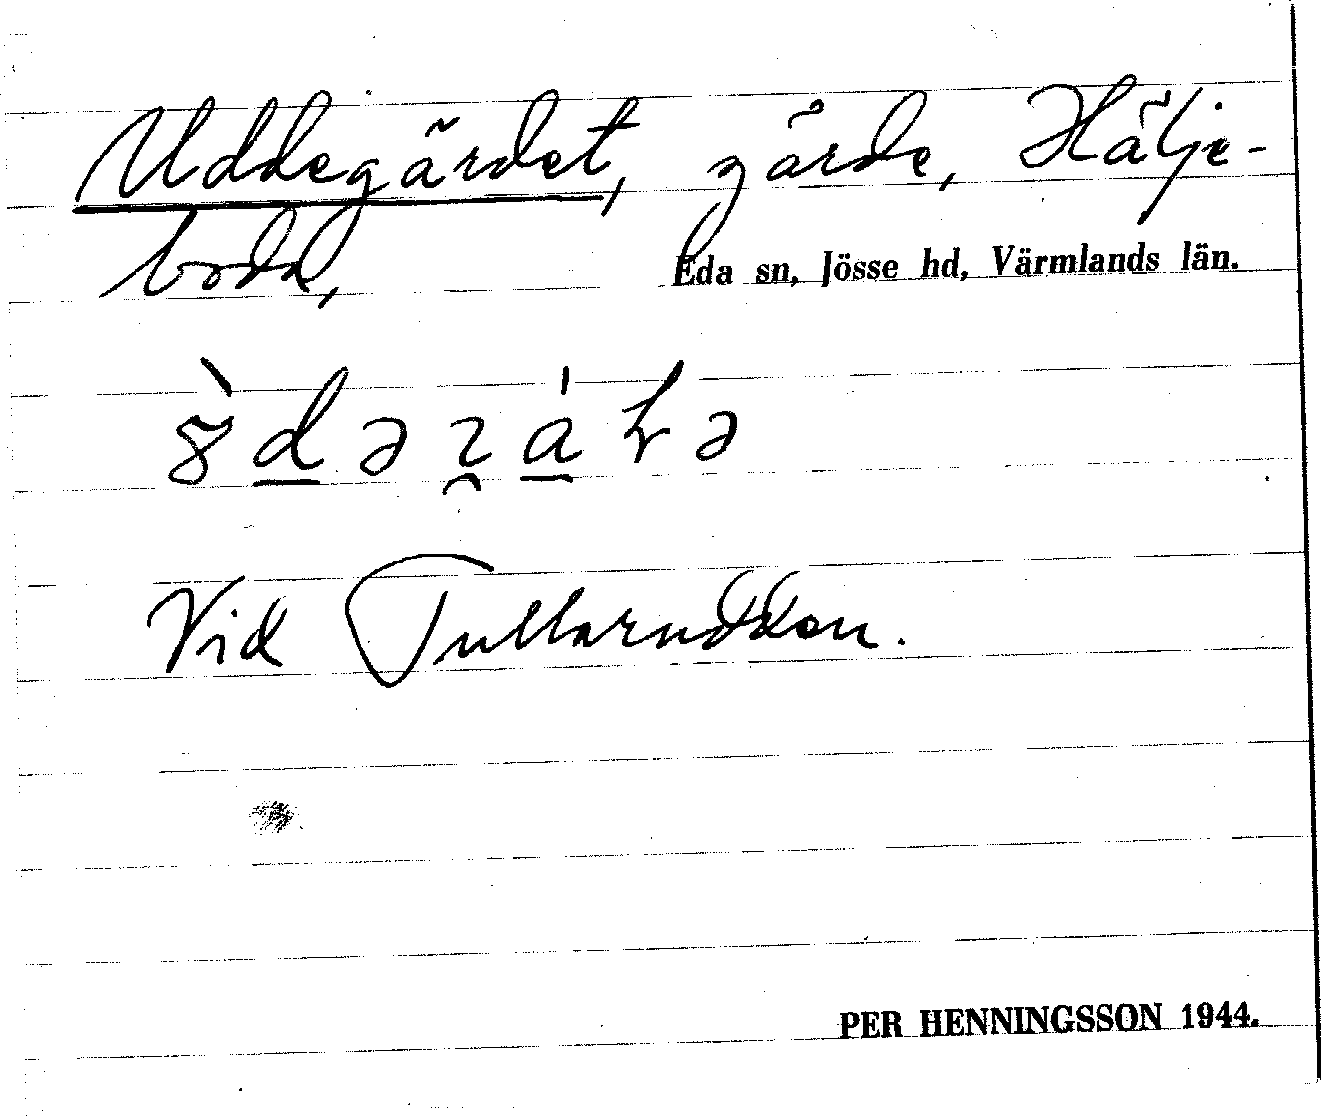 Uddegärdet, gärde, Hälje-
boda,
Eda sn, Jösse hd, Värmlands län.
Vid Tullarudden.
PER HENNINGSSON 1944.